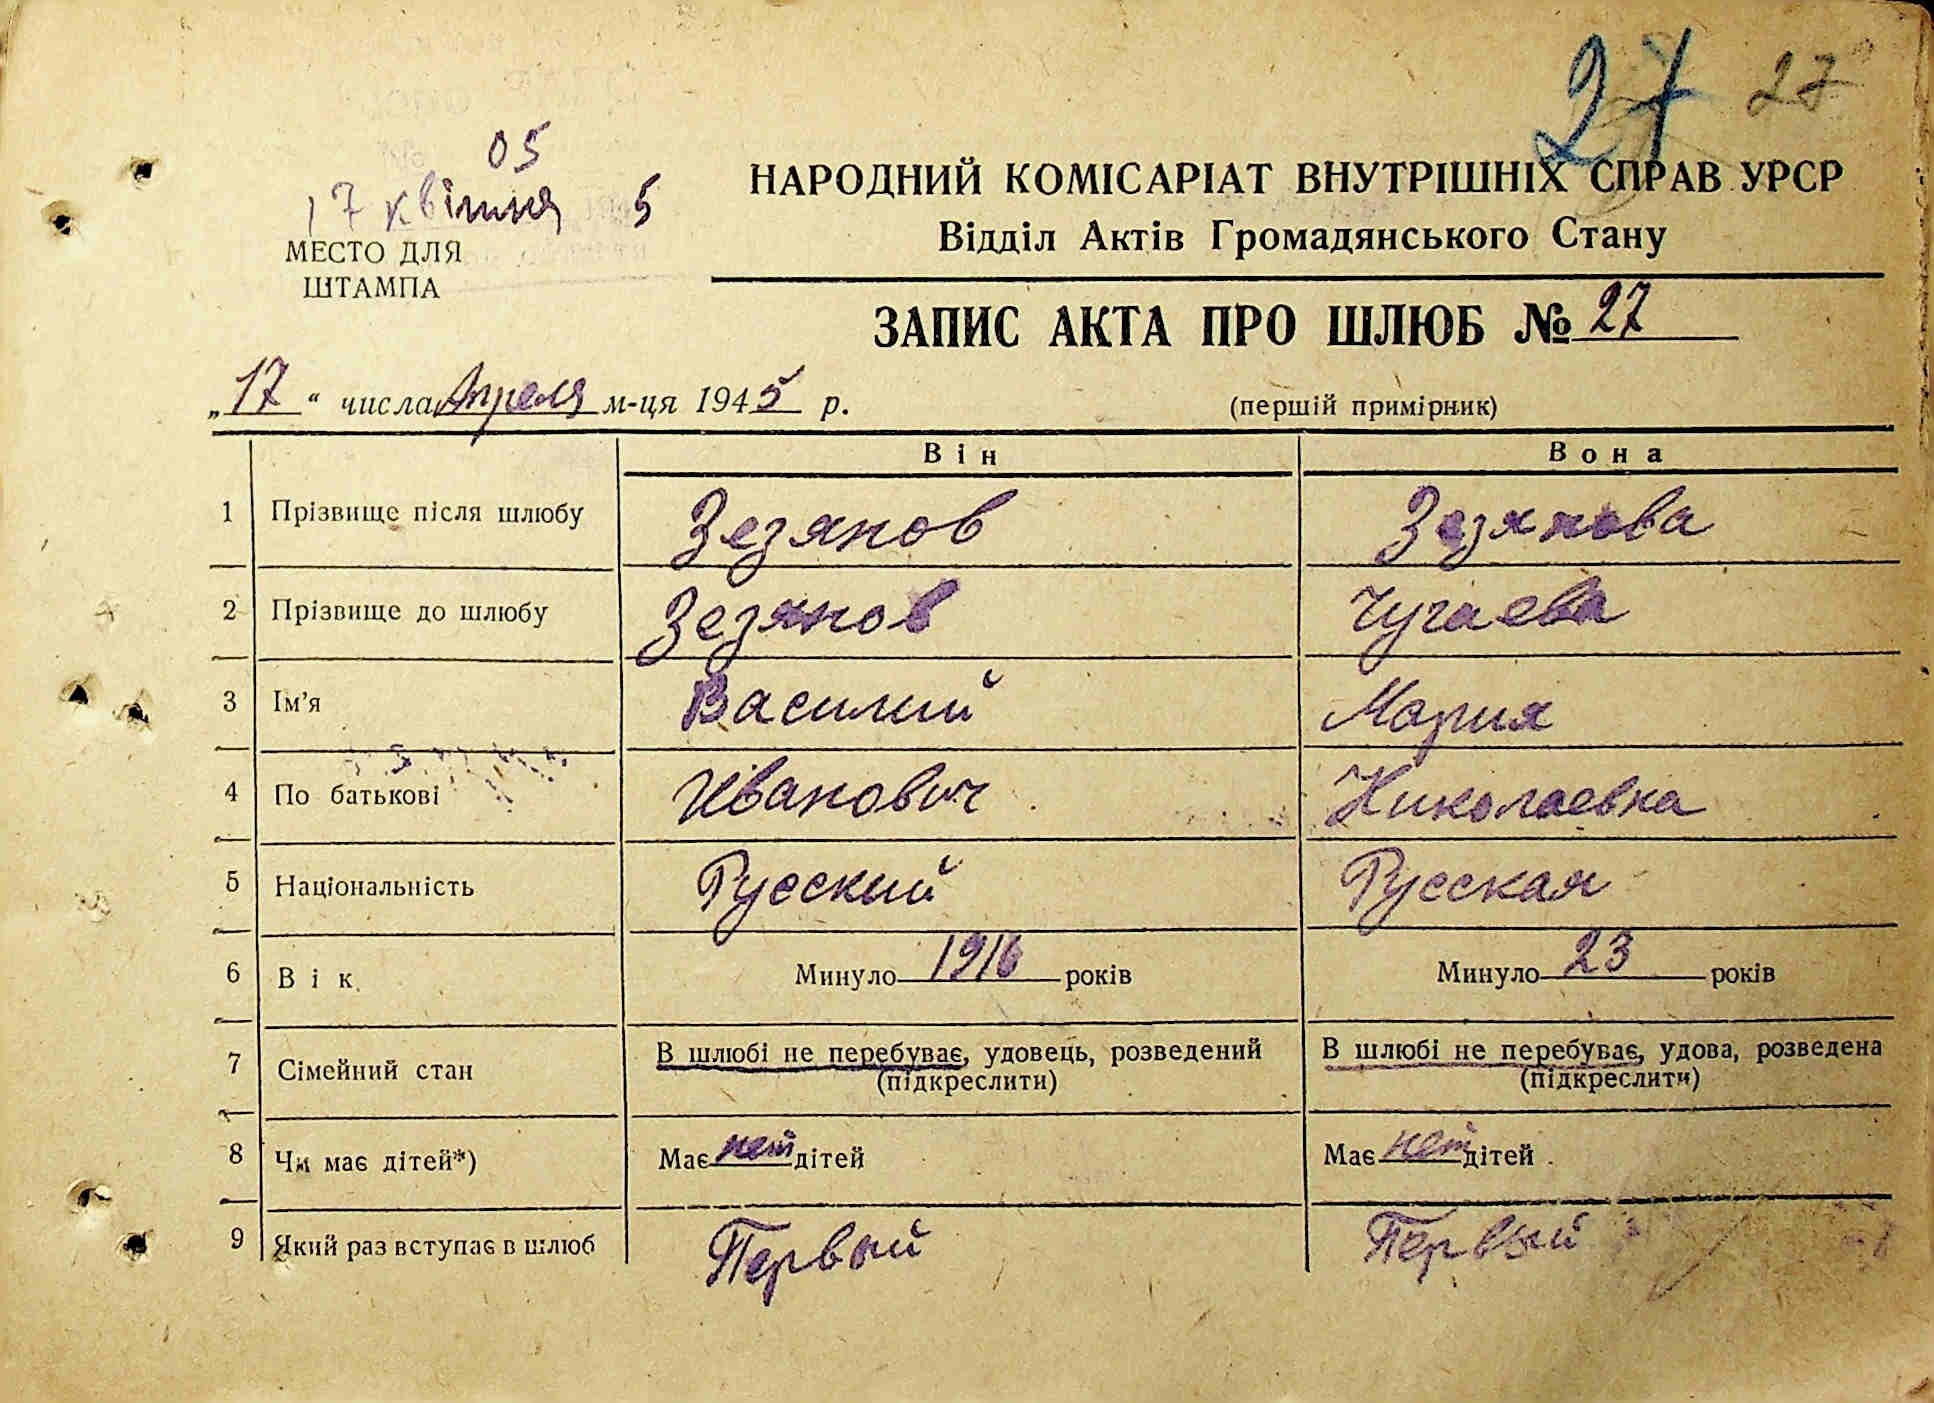 27 27
05
17 квітня 5
МЕСТО ДЛЯ
ШТАМПА
НАРОДНИЙ КОМІСАРІАТ ВНУТРІШНІХ СПРАВ УРСР
Відділ Актів Громадянського Стану
ЗАПИС АКТА ПРО ШЛЮБ № 27
„17“ числа Апреля м-ця 1945 р.
(першій примірник)
Він Вона
1 Прізвище після шлюбу Зезянов Зезянова
2 Прізвище до шлюбу Зезянов Чугаева
3 Ім'я Василий Мария
4 По батькові Иванович Николаевна
5 Національність Русский Русская
6 Вік Минуло 1916 років Минуло 23 років
7 Сімейний стан В шлюбі не перебуває, удовець, розведений (підкреслити) В шлюбі не перебуває, удова, розведена (підкреслити)
8 Чи має дітей*) Має нет дітей Має нет дітей
9 Який раз вступає в шлюб Первый Первый